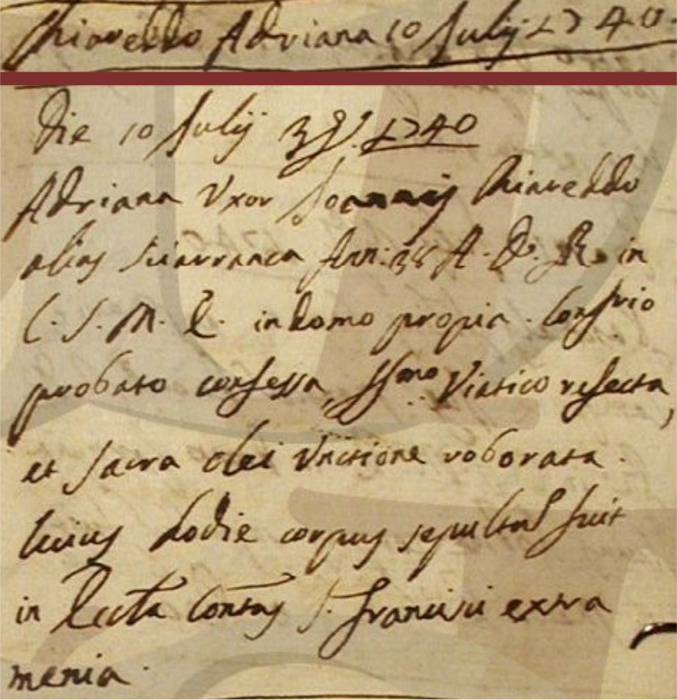 Chiareddo Adriana 10 Julij 1740.
Die 10 Julij 3 Ind. 1740
Adriana Uxor Joannis Chiareddo
alias Sciarranca Ann: 38 A. D. R. in
C. S. M. E. in domo propia. Confrio
probato confessa, SSmo Viatico refecta,
et sacra olei Unctione roborata.
Cuius hodie corpus sepultus fuit
in Eccta Contus S. Francisci extra
menia.